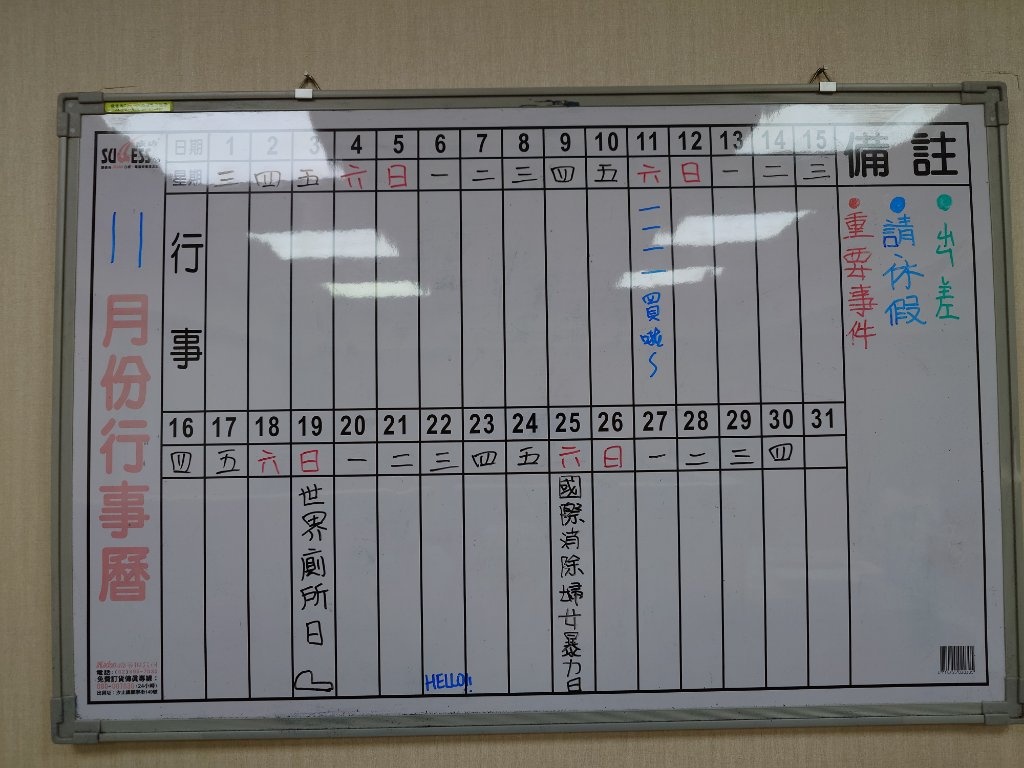 SUCCESS
日期 1 2 3 4 5 6 7 8 9 10 11 12 13 14 15
星期 三 四 五 六 日 一 二 三 四 五 六 日 一 二 三
備註
11月份行事曆
行事
一一一一買啦~
重要事件
請休假
出差
16 17 18 19 20 21 22 23 24 25 26 27 28 29 30 31
四 五 六 日 一 二 三 四 五 六 日 一 二 三 四
世界廁所日
HELLO!!
國際消除婦女暴力日
免費訂貨傳真專線: